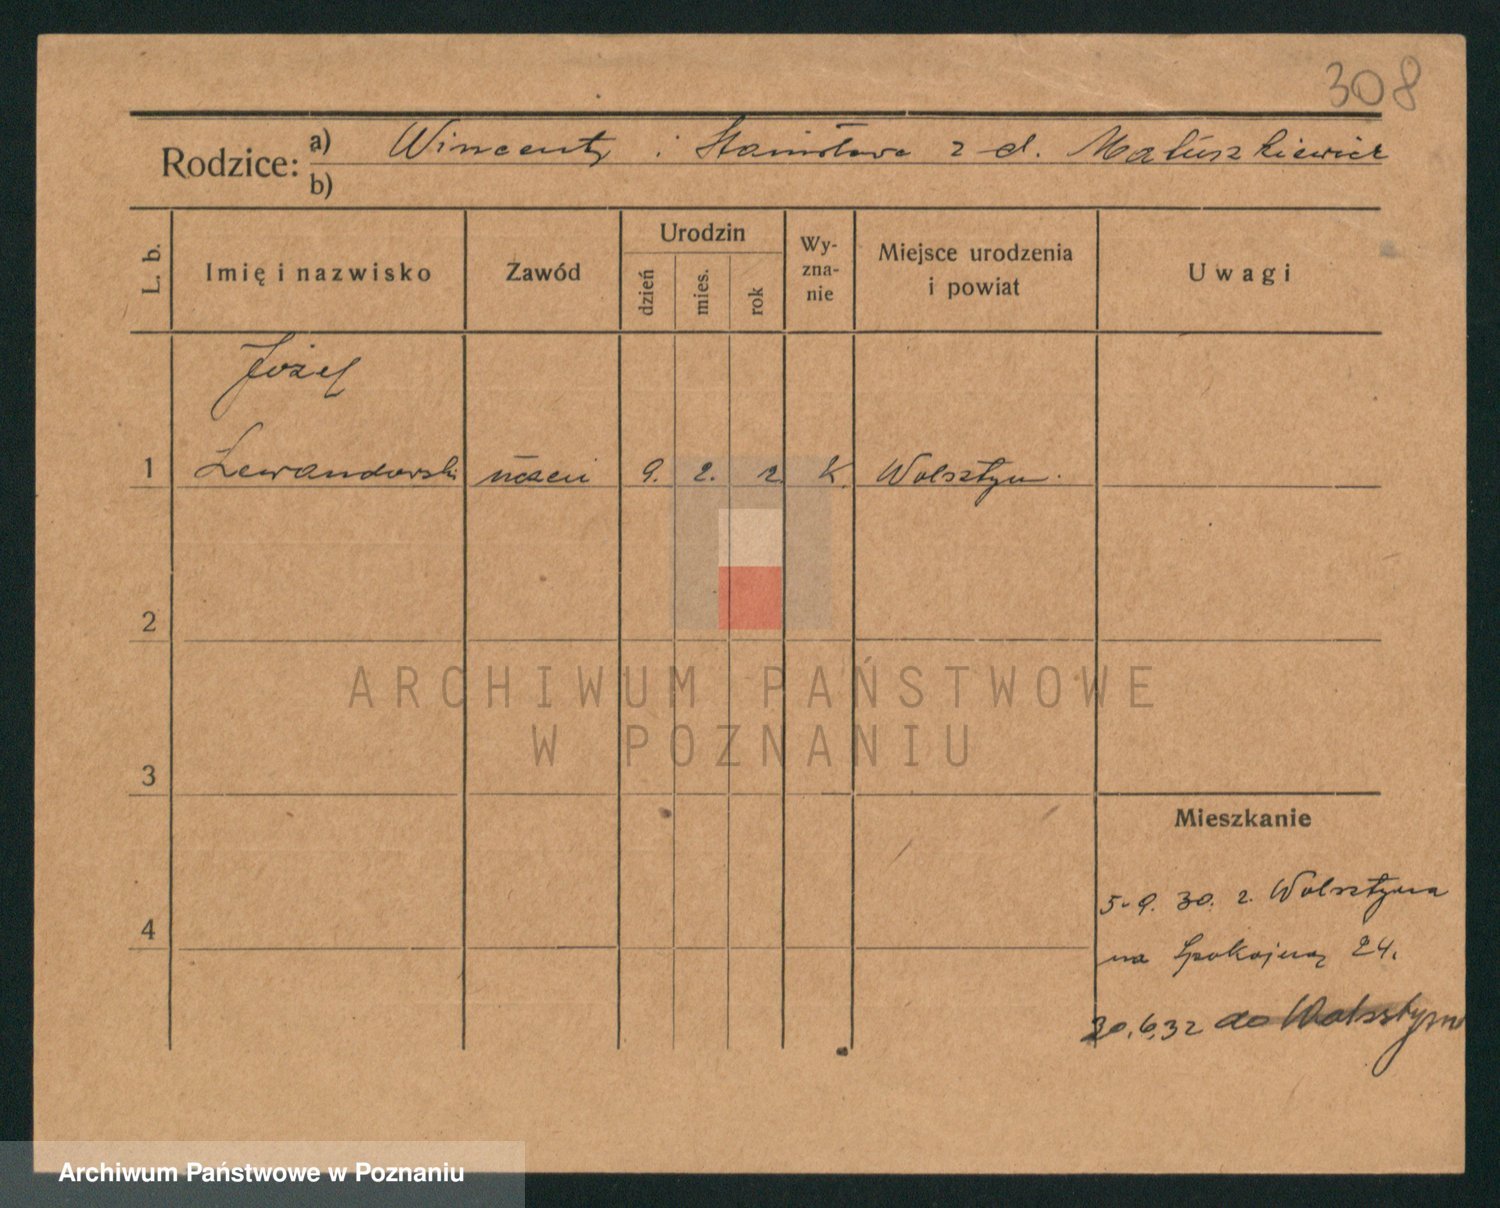 308
Rodzice: a) Wincenty i Stanisława z d. Matuszkiewicz
b)
L. b. Imię i nazwisko Zawód Urodzin dzień mies. rok Wy-zna-nie Miejsce urodzenia i powiat Uwagi
Józef
1 Lewandowski uczeń 9. 2. 12. K. Wolsztyn.
2
ARCHIWUM PAŃSTWOWE
W POZNANIU
3
Mieszkanie
5.9.30. z Wolsztyna
4
na Spokojną 24.
30.6.32 do Wolsztyna
Archiwum Państwowe w Poznaniu